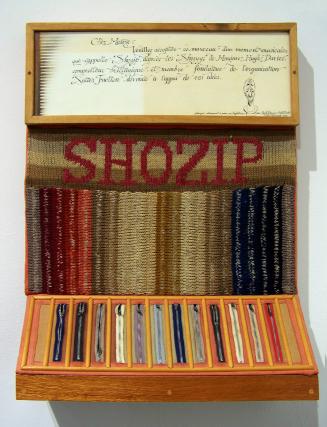 Cher Maître,
Veuillez accepter ce morceau d'un moment musicales
que j'appelle Shozip d'après les "Shozyg" de Monsieur Hugh Davies
compositeur britannique et membre fondateur de l'organisation
Fonction dévouée à l'appui de vos idées.
SHOZIP